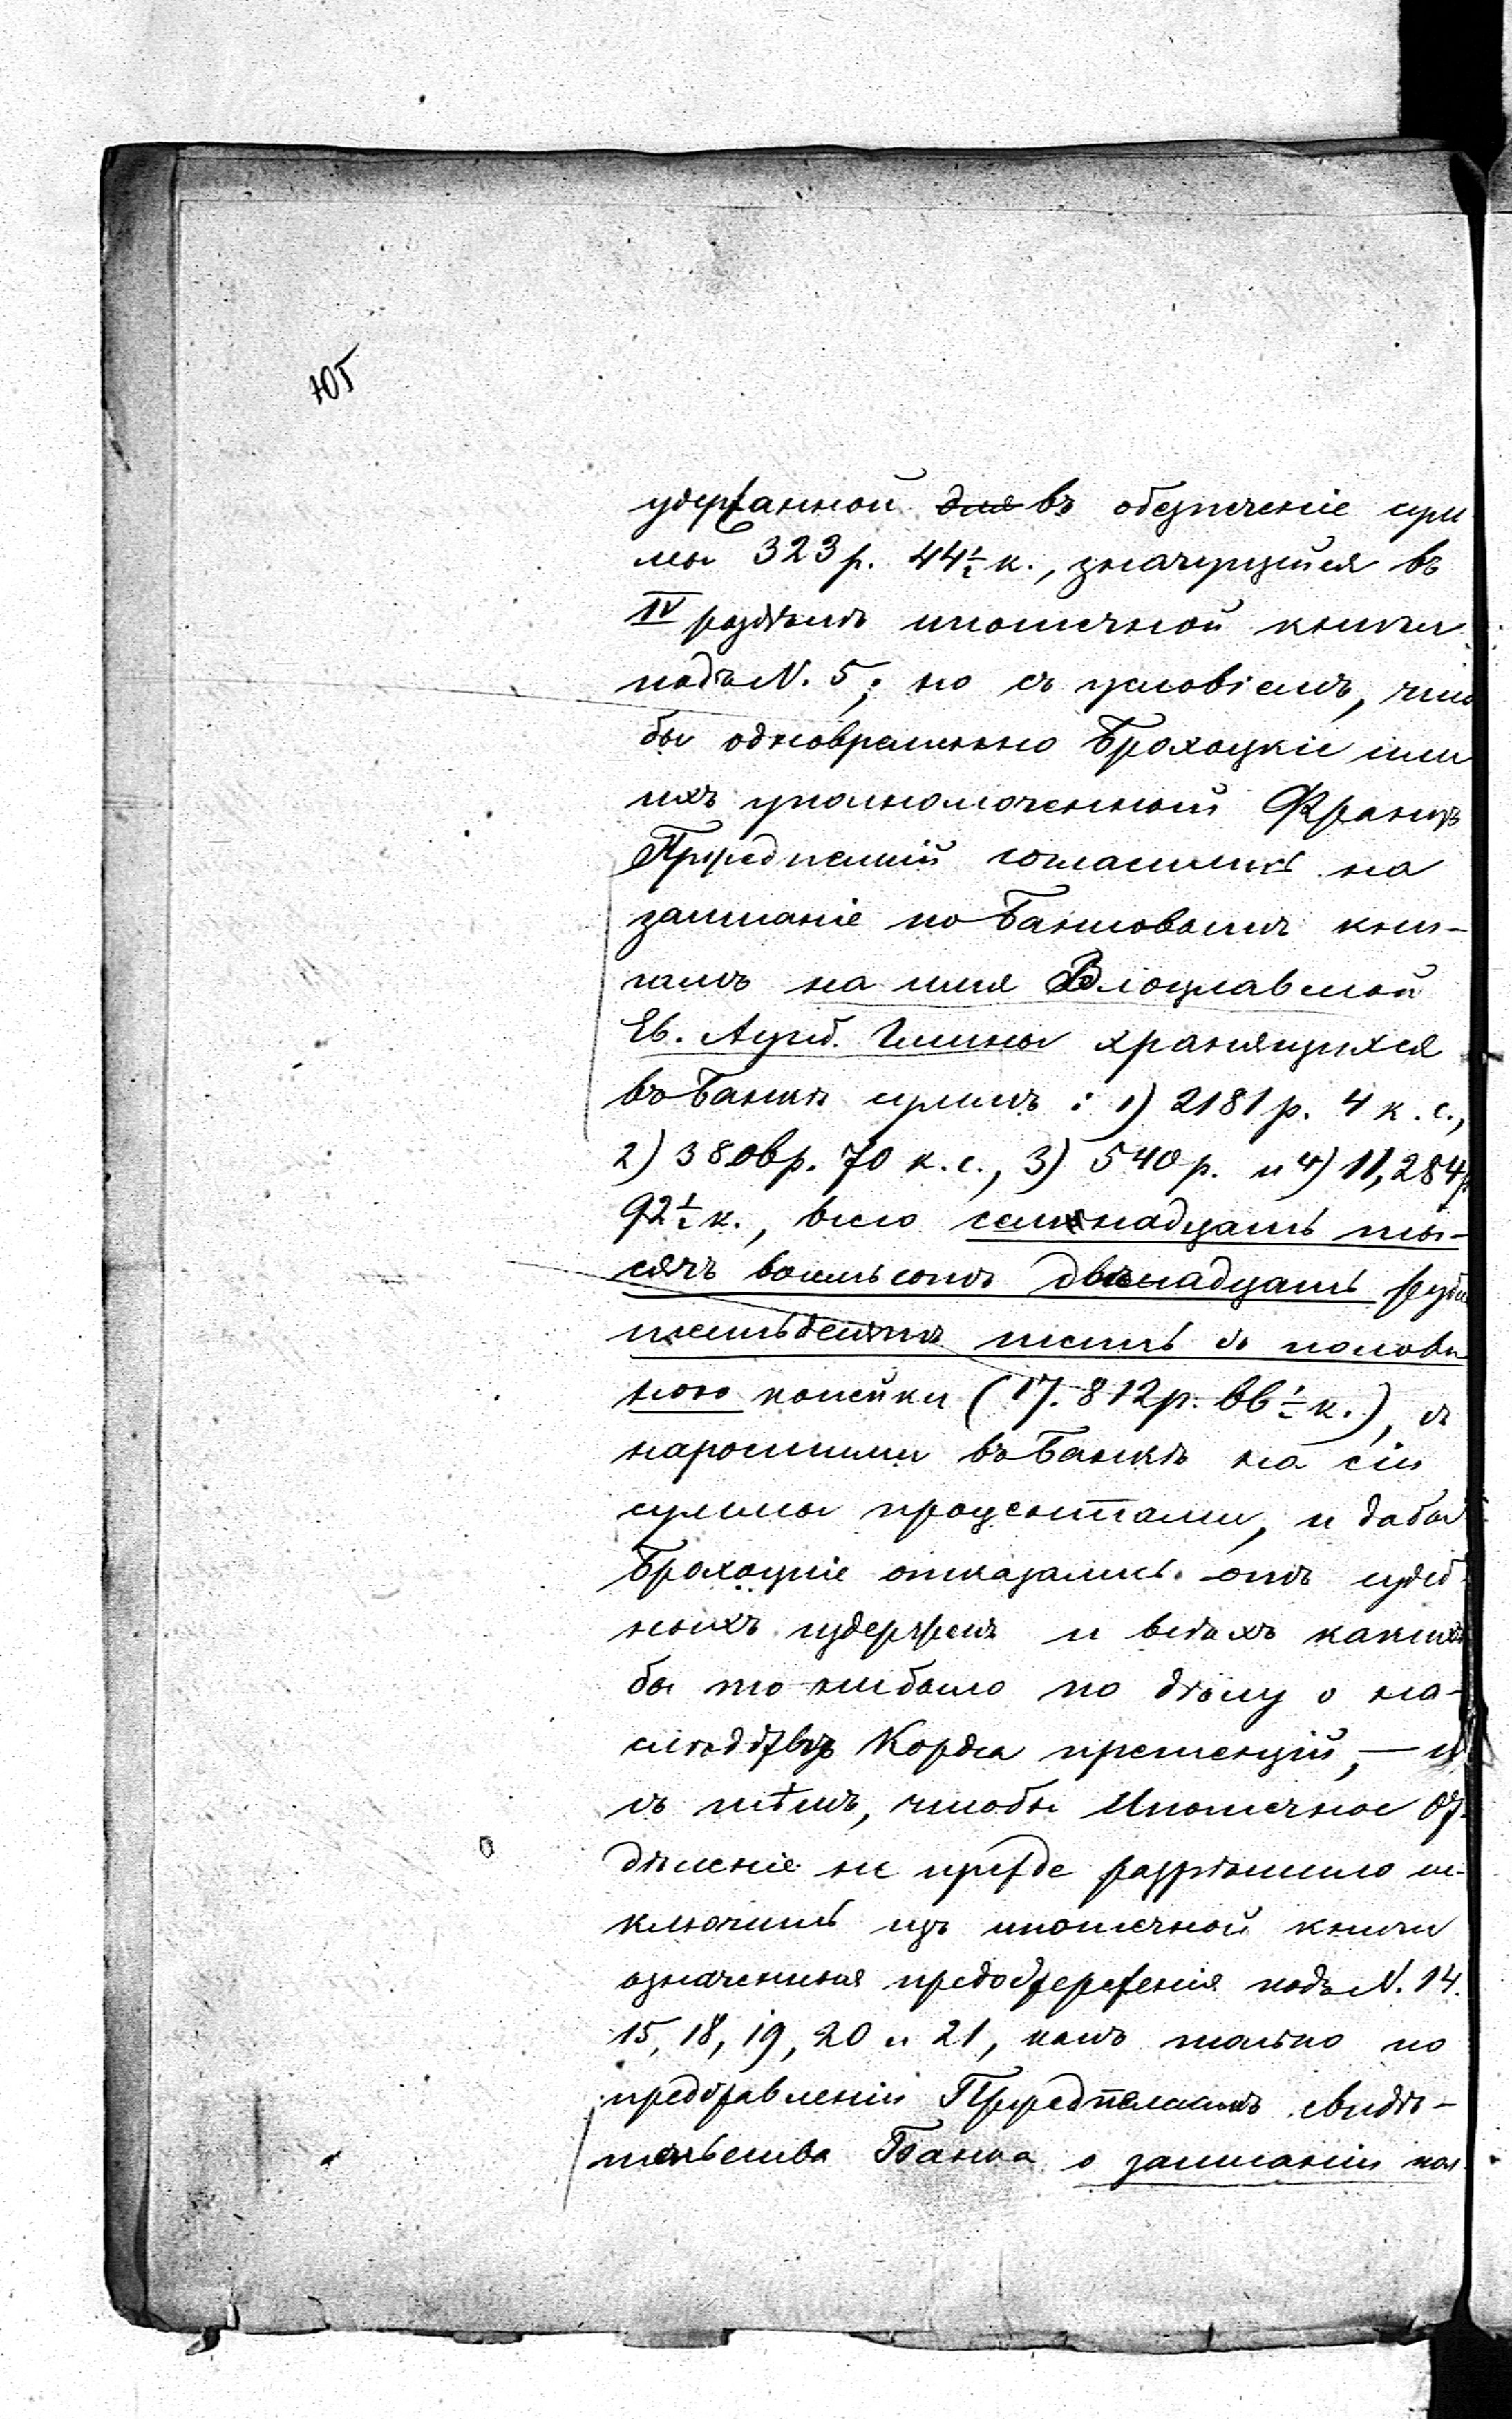 105
удержанной для въ обезпеченіе сум
мы 323 р. 44½ к., значущейся въ
IV раздѣлѣ ипотечной книги
подъ N. 5; но съ условіемъ, что
бы одновременно Брохоцкіе или
ихъ уполномоченный Францъ
согласились на
записаніе по Банковымъ кни-
гамъ на имя Влоцлавской
Ев. Аугсб. Гмины хранящихся
въ Банкѣ суммъ: 1) 2181 р. 4 к. с.,
2) 3806 р. 70 к. с., 3) 540 р. и 4) 11,284 р.
92½ к., всего семнадцать ты-
сячъ восемьсотъ двѣнадцать рубл
шестьдесятъ шесть съ полови
ною копейки (17.812 р. 66½ к.), съ
наросшими въ Банкѣ на сіи
суммы процентами, и дабы
Брохоцкіе отказались отъ судеб
ныхъ издержекъ и всѣхъ какихъ
бы то нибыло по дѣлу о на-
слѣдствѣ Корда претензій, — и
съ тѣмъ, чтобы Ипотечное От
дѣленіе не прежде разрѣшило ис-
ключить изъ ипотечной книги
означенныя предостереженія подъ N. 14.
15, 18, 19, 20 и 21, какъ только по
представленіи свидѣ-
тельства Банка о записаніи